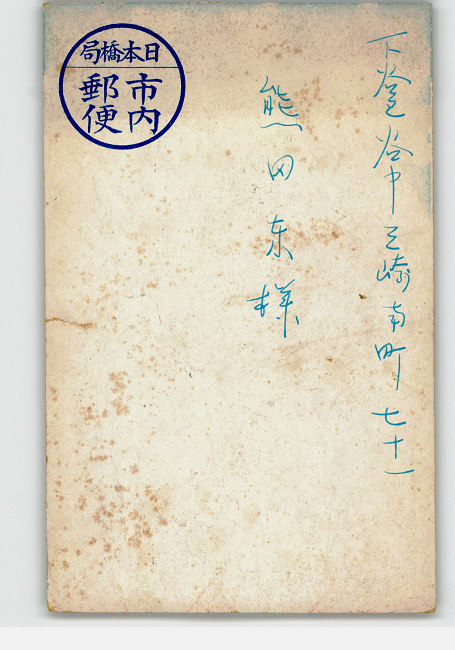 下谷区谷中三崎南町七十一
熊田東様
日本橋局
市内
郵便